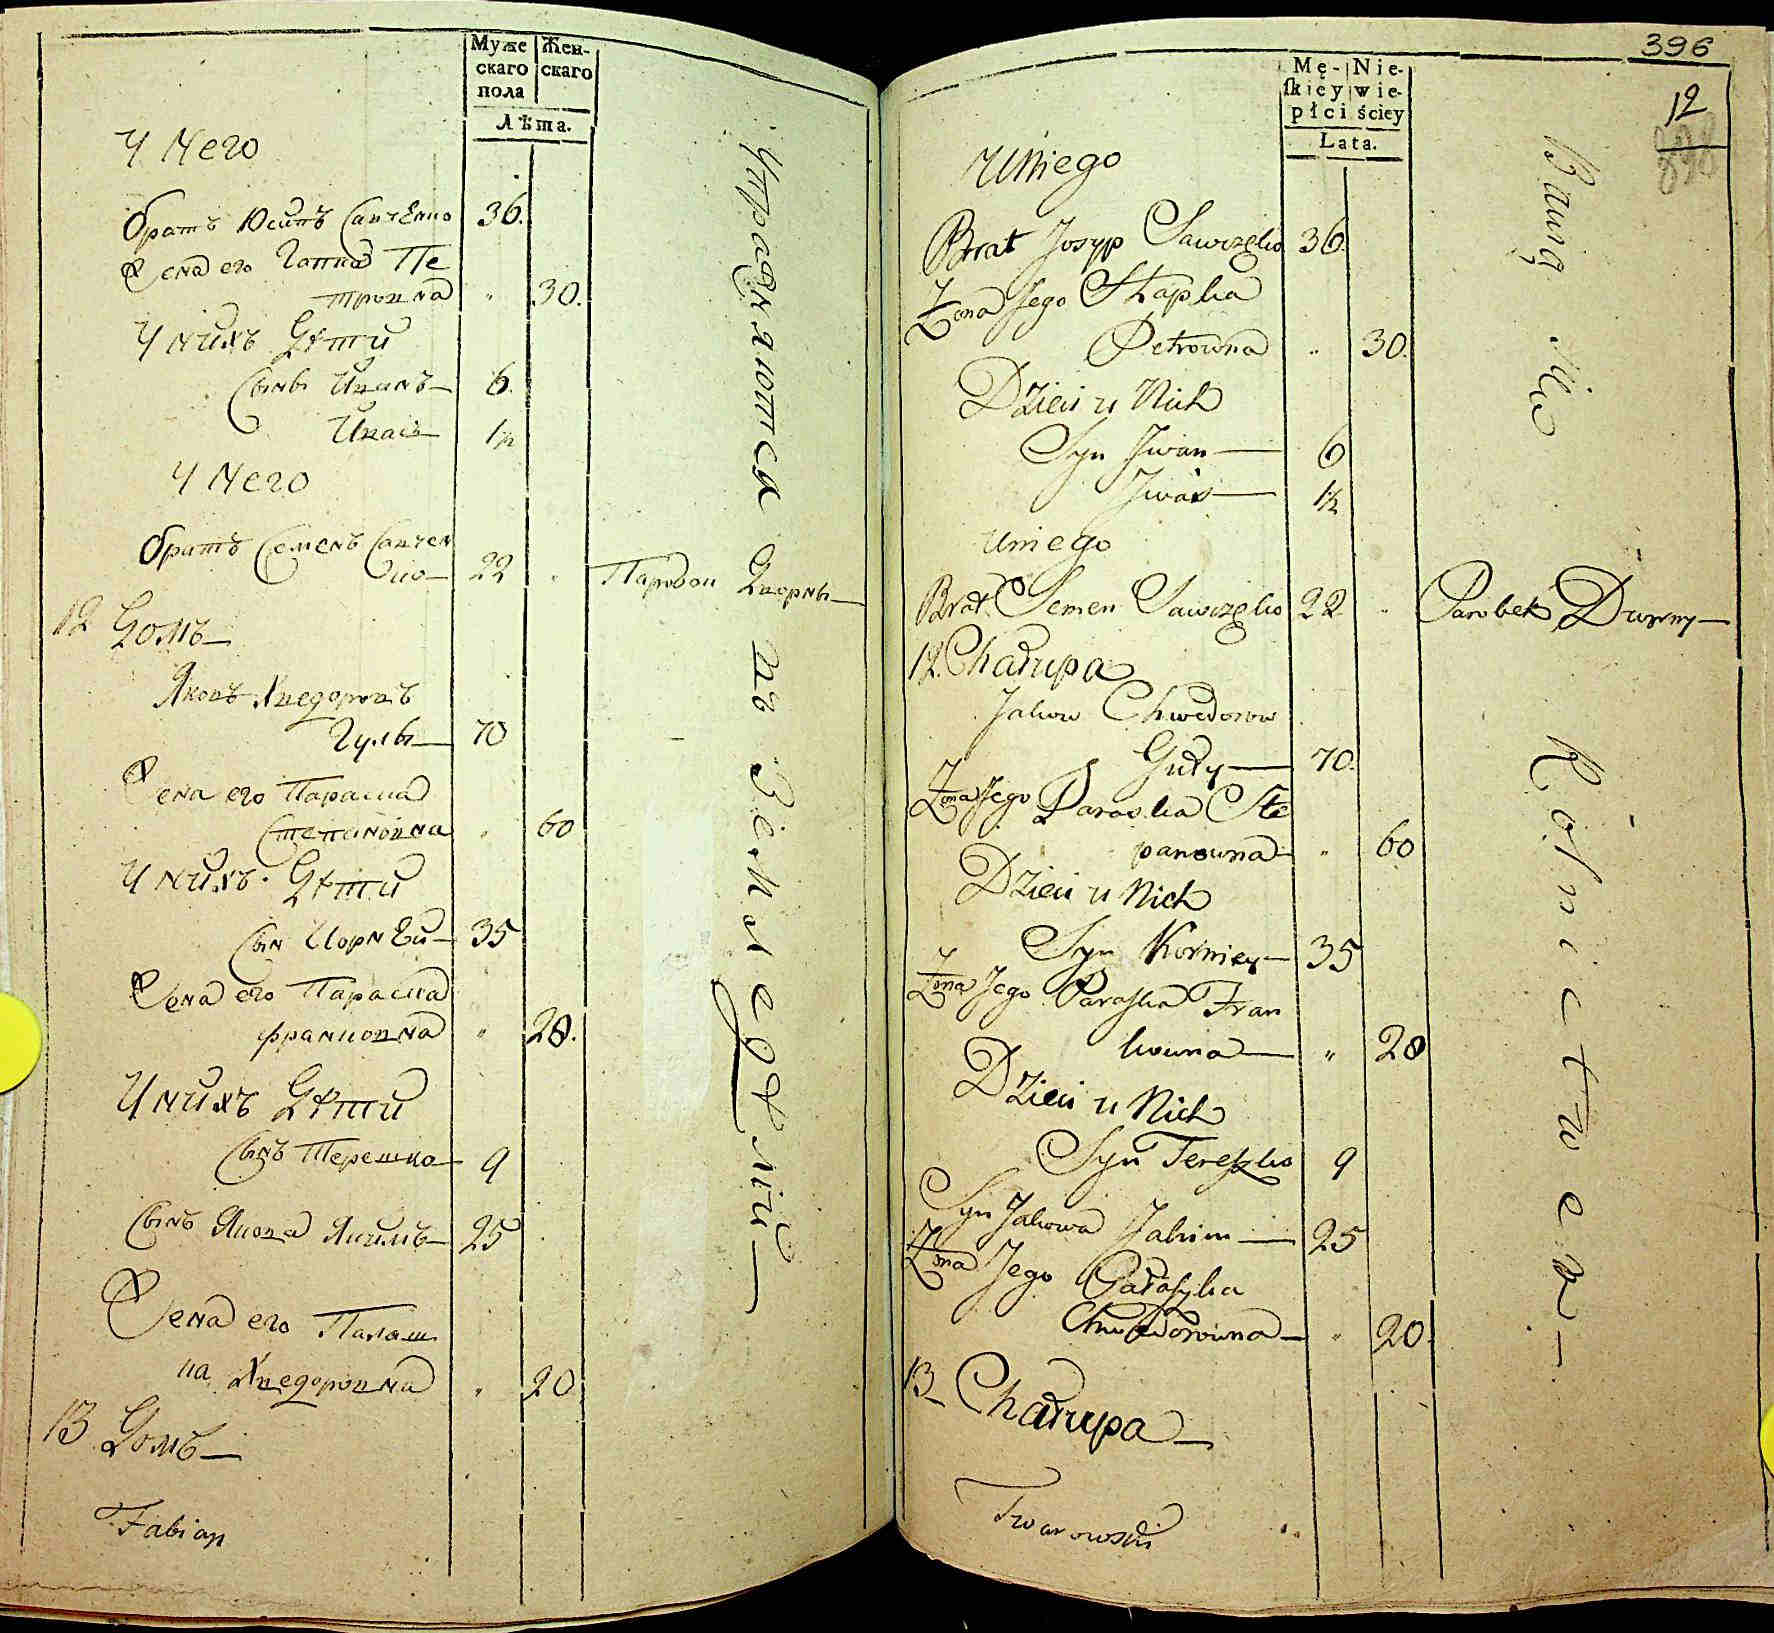 Муже
скаго
пола
Жен-
скаго
Лѣта.
У Него
братъ Юсипъ Савченко 36.
Жена его Гапка Пе
тровна " 30.
У нихъ Дѣти
Сынъ Иванъ 6.
Ивась 1½
У Него
братъ Семенъ Савчен
ко 22 " Паробок Дворны
12 Домъ
Яковъ Хведоровъ
Гулы 70
Жена его Параска
Степановна " 60
У нихъ Дѣти
Сын Корней 35
Жена его Параска
франковна " 28.
У нихъ Дѣти
Сынъ Терешко 9
Сынъ Якова Якимъ 25
Жена его Палаш
ка Хведоровна " 20
13 Домъ
Fabian
Упражняются въ Земледѣлiи
396
12
Mę-
skiey
płci
Nie-
wie-
ściey
Lata.
U Niego
Brat Josyp Sawczęko 36.
Żona Jego Hapka
Petrowna " 30.
Dzieci u Nich
Syn Jwan 6
Jwaś 1½
U niego
Brat Semen Sawczęko 22 " Parobek Dworny
12. Chałupa
Jakow Chwedorow
Guły 70.
Żona Jego Paraska Ste
panowna " 60
Dzieci u Nich
Syn Korniey 35
Żona Jego Paraska Fran
kowna " 28
Dzieci u Nich
Syn Tereszko 9
Syn Jakowa Jakim 25
Żona Jego Pałaszka
Chwedorowna " 20.
13 Chałupa
Twarowski
Bawią się Rolnictwem